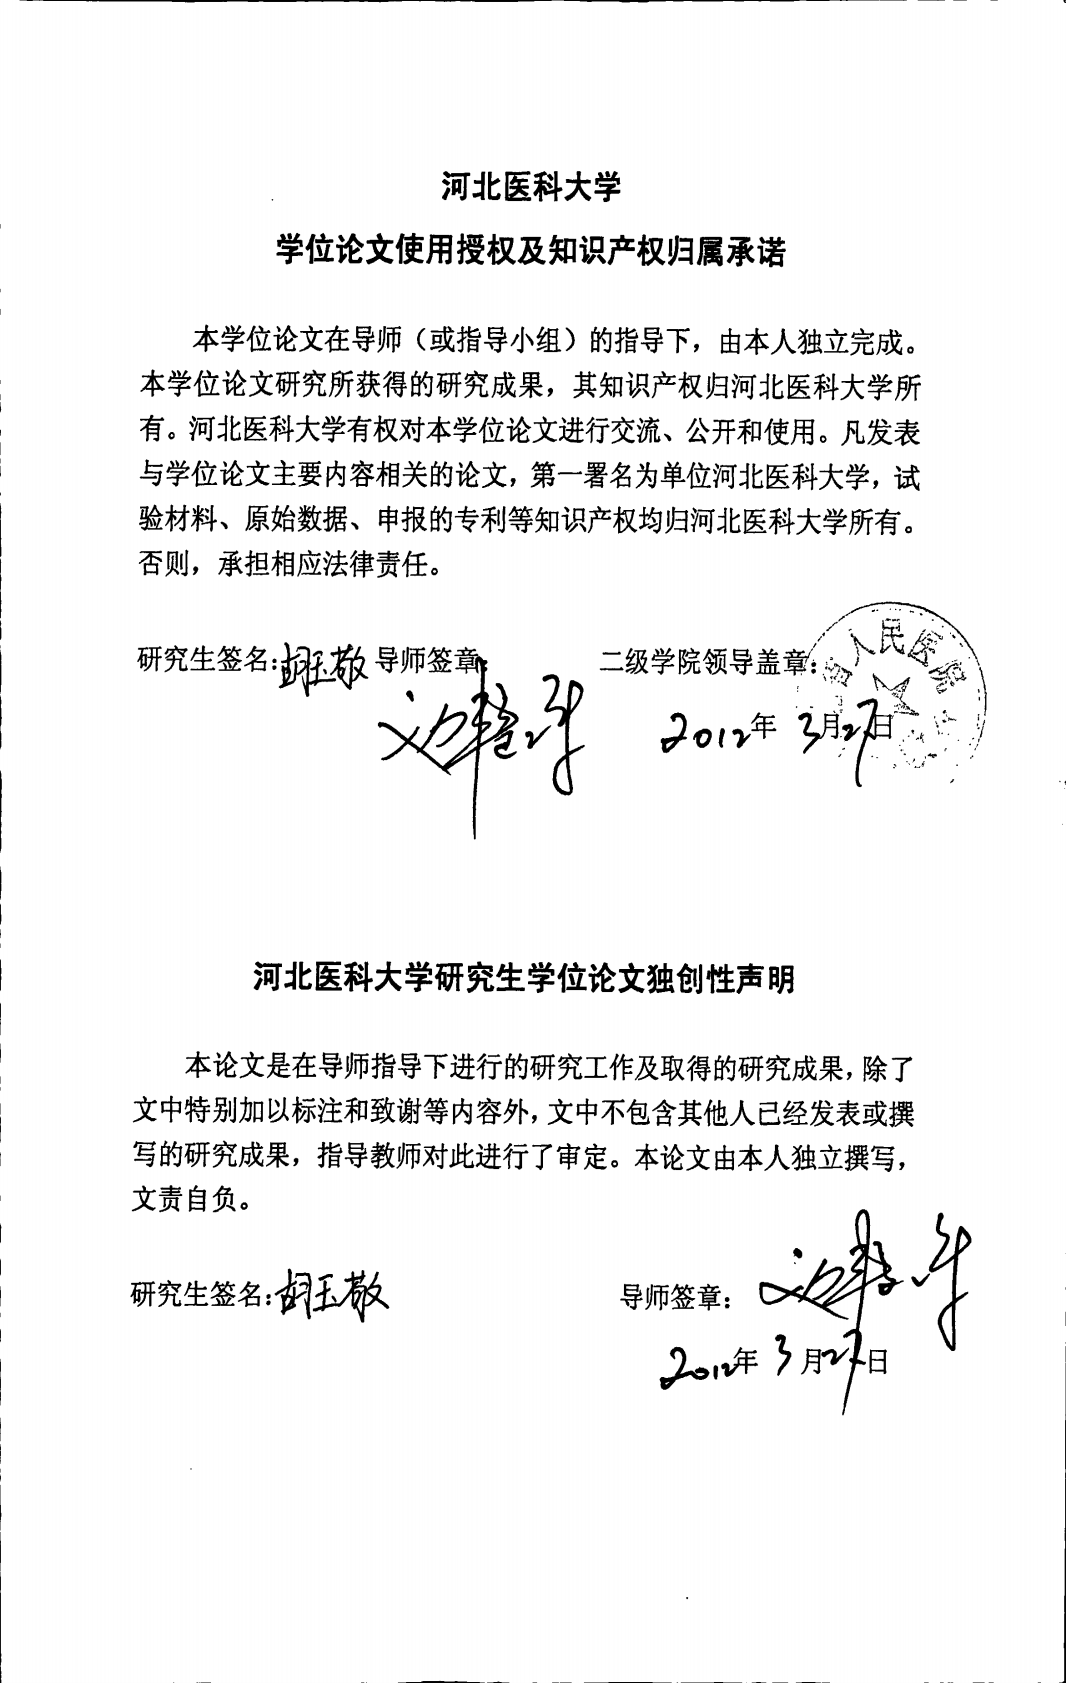 河北医科大学
学位论文使用授权及知识产权归属承诺
本学位论文在导师（或指导小组）的指导下，由本人独立完成。
本学位论文研究所获得的研究成果，其知识产权归河北医科大学所
有。河北医科大学有权对本学位论文进行交流、公开和使用。凡发表
与学位论文主要内容相关的论文，第一署名为单位河北医科大学，试
验材料、原始数据、申报的专利等知识产权均归河北医科大学所有。
否则，承担相应法律责任。
研究生签名：胡玉敬 导师签章： 二级学院领导盖章：
省人民医院
2012年3月27日
河北医科大学研究生学位论文独创性声明
本论文是在导师指导下进行的研究工作及取得的研究成果，除了
文中特别加以标注和致谢等内容外，文中不包含其他人已经发表或撰
写的研究成果，指导教师对此进行了审定。本论文由本人独立撰写，
文责自负。
研究生签名：胡玉敬 导师签章：
2012年3月27日